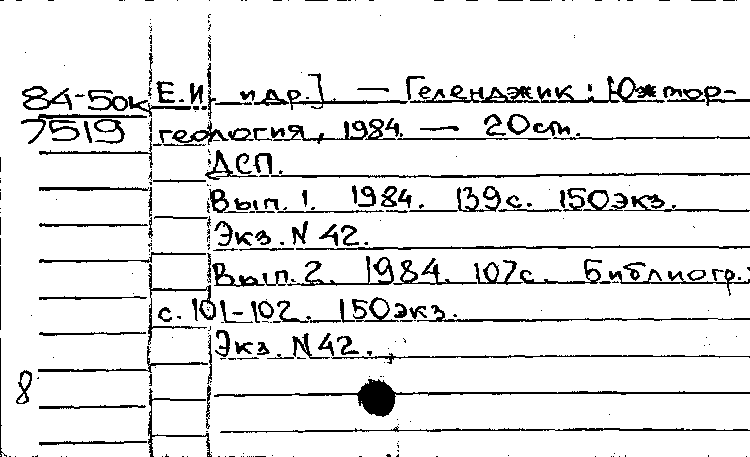 84-5ок Е.И. и др.]. — Геленджик : Южмор-
7519 геология, 1984. — 20 см.
ДСП.
Вып. 1. 1984. 139 с. 150 экз.
Экз. N 42.
Вып. 2. 1984. 107 с. Библиогр.:
с. 101-102. 150 экз.
Экз. N 42.
8